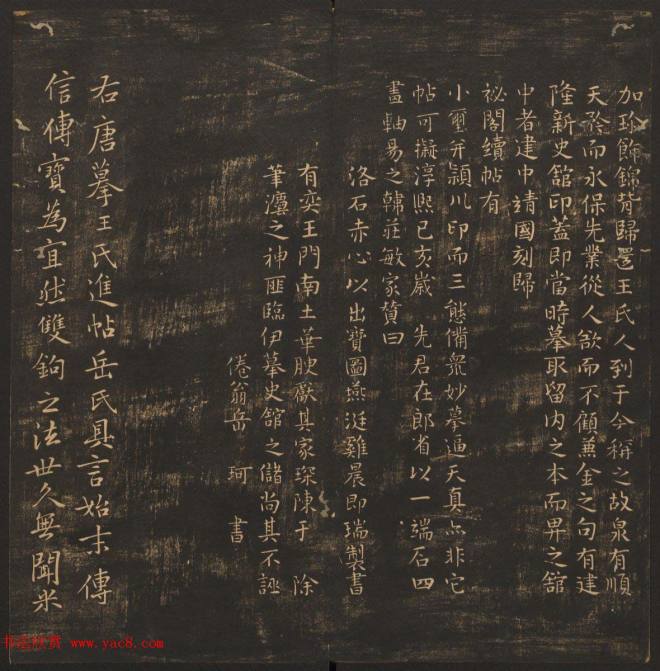 加珎飾錦背歸還王氏人到于今稱之故泉有順
天 而永保先業從人欲而不顧蒹金之句有建
隆新史舘印蓋即當時摹取留内之本而畀之舘
中者建中靖國刻歸
祕閣續帖有
小璽并潁川印而三態備衆妙摹逼天真亦非它
帖可擬淳熙已亥歲 先君在郎省以一端石四
畫軸易之韓莊敏家贊曰
洛石赤心以出寶圖燕涎雞晨即瑞製書
有奕王門南土華腴厭其家琛陳于 除
筆濡之神匪臨伊摹史舘之儲尚其不誣
倦翁岳 珂 書
右唐摹王氏進帖岳氏具言始末傳
信傳寶為宜然雙鉤之法世久無聞米
書法欣賞 www.yac8.com